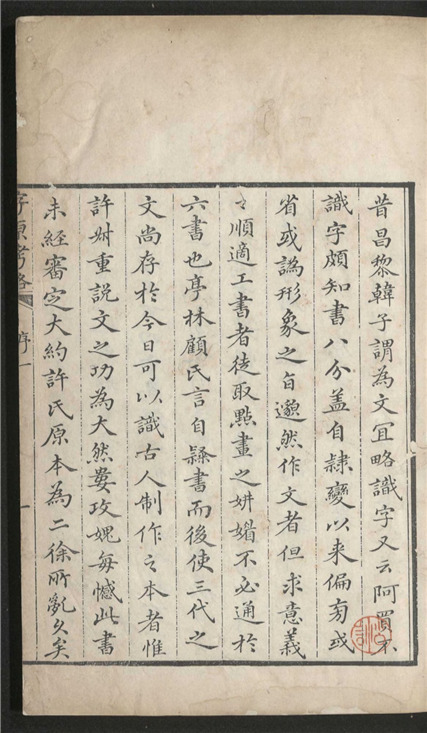 昔昌黎韓子謂為文宜略識字又云阿買不
識字頗知書八分盖自隸變以来偏旁或
省或譌形象之旨邈然作文者但求意義
之順適工書者徒取點畫之妍媚不必通於
六書也亭林顧氏言自隸書而後使三代之
文尚存於今日可以識古人制作之本者惟
許叔重說文之功為大然婁攷媿每憾此書
未經審定大約許氏原本為二徐所亂久矣
字原考略 序 一